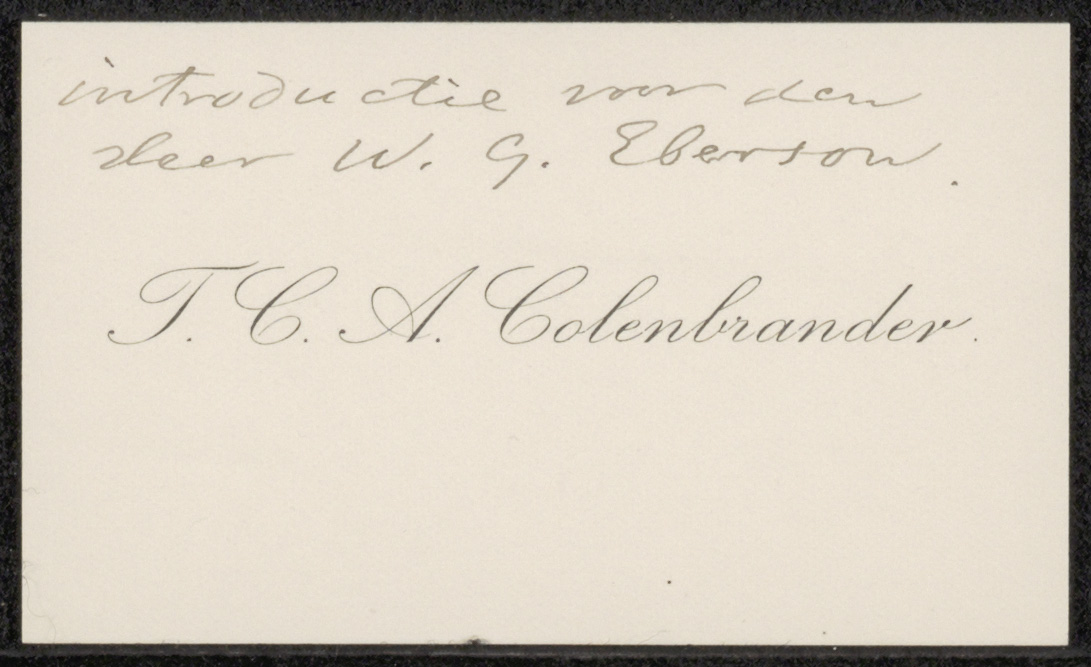 introductie voor den
Heer W. G. Eberson.
T. C. A. Colenbrander.